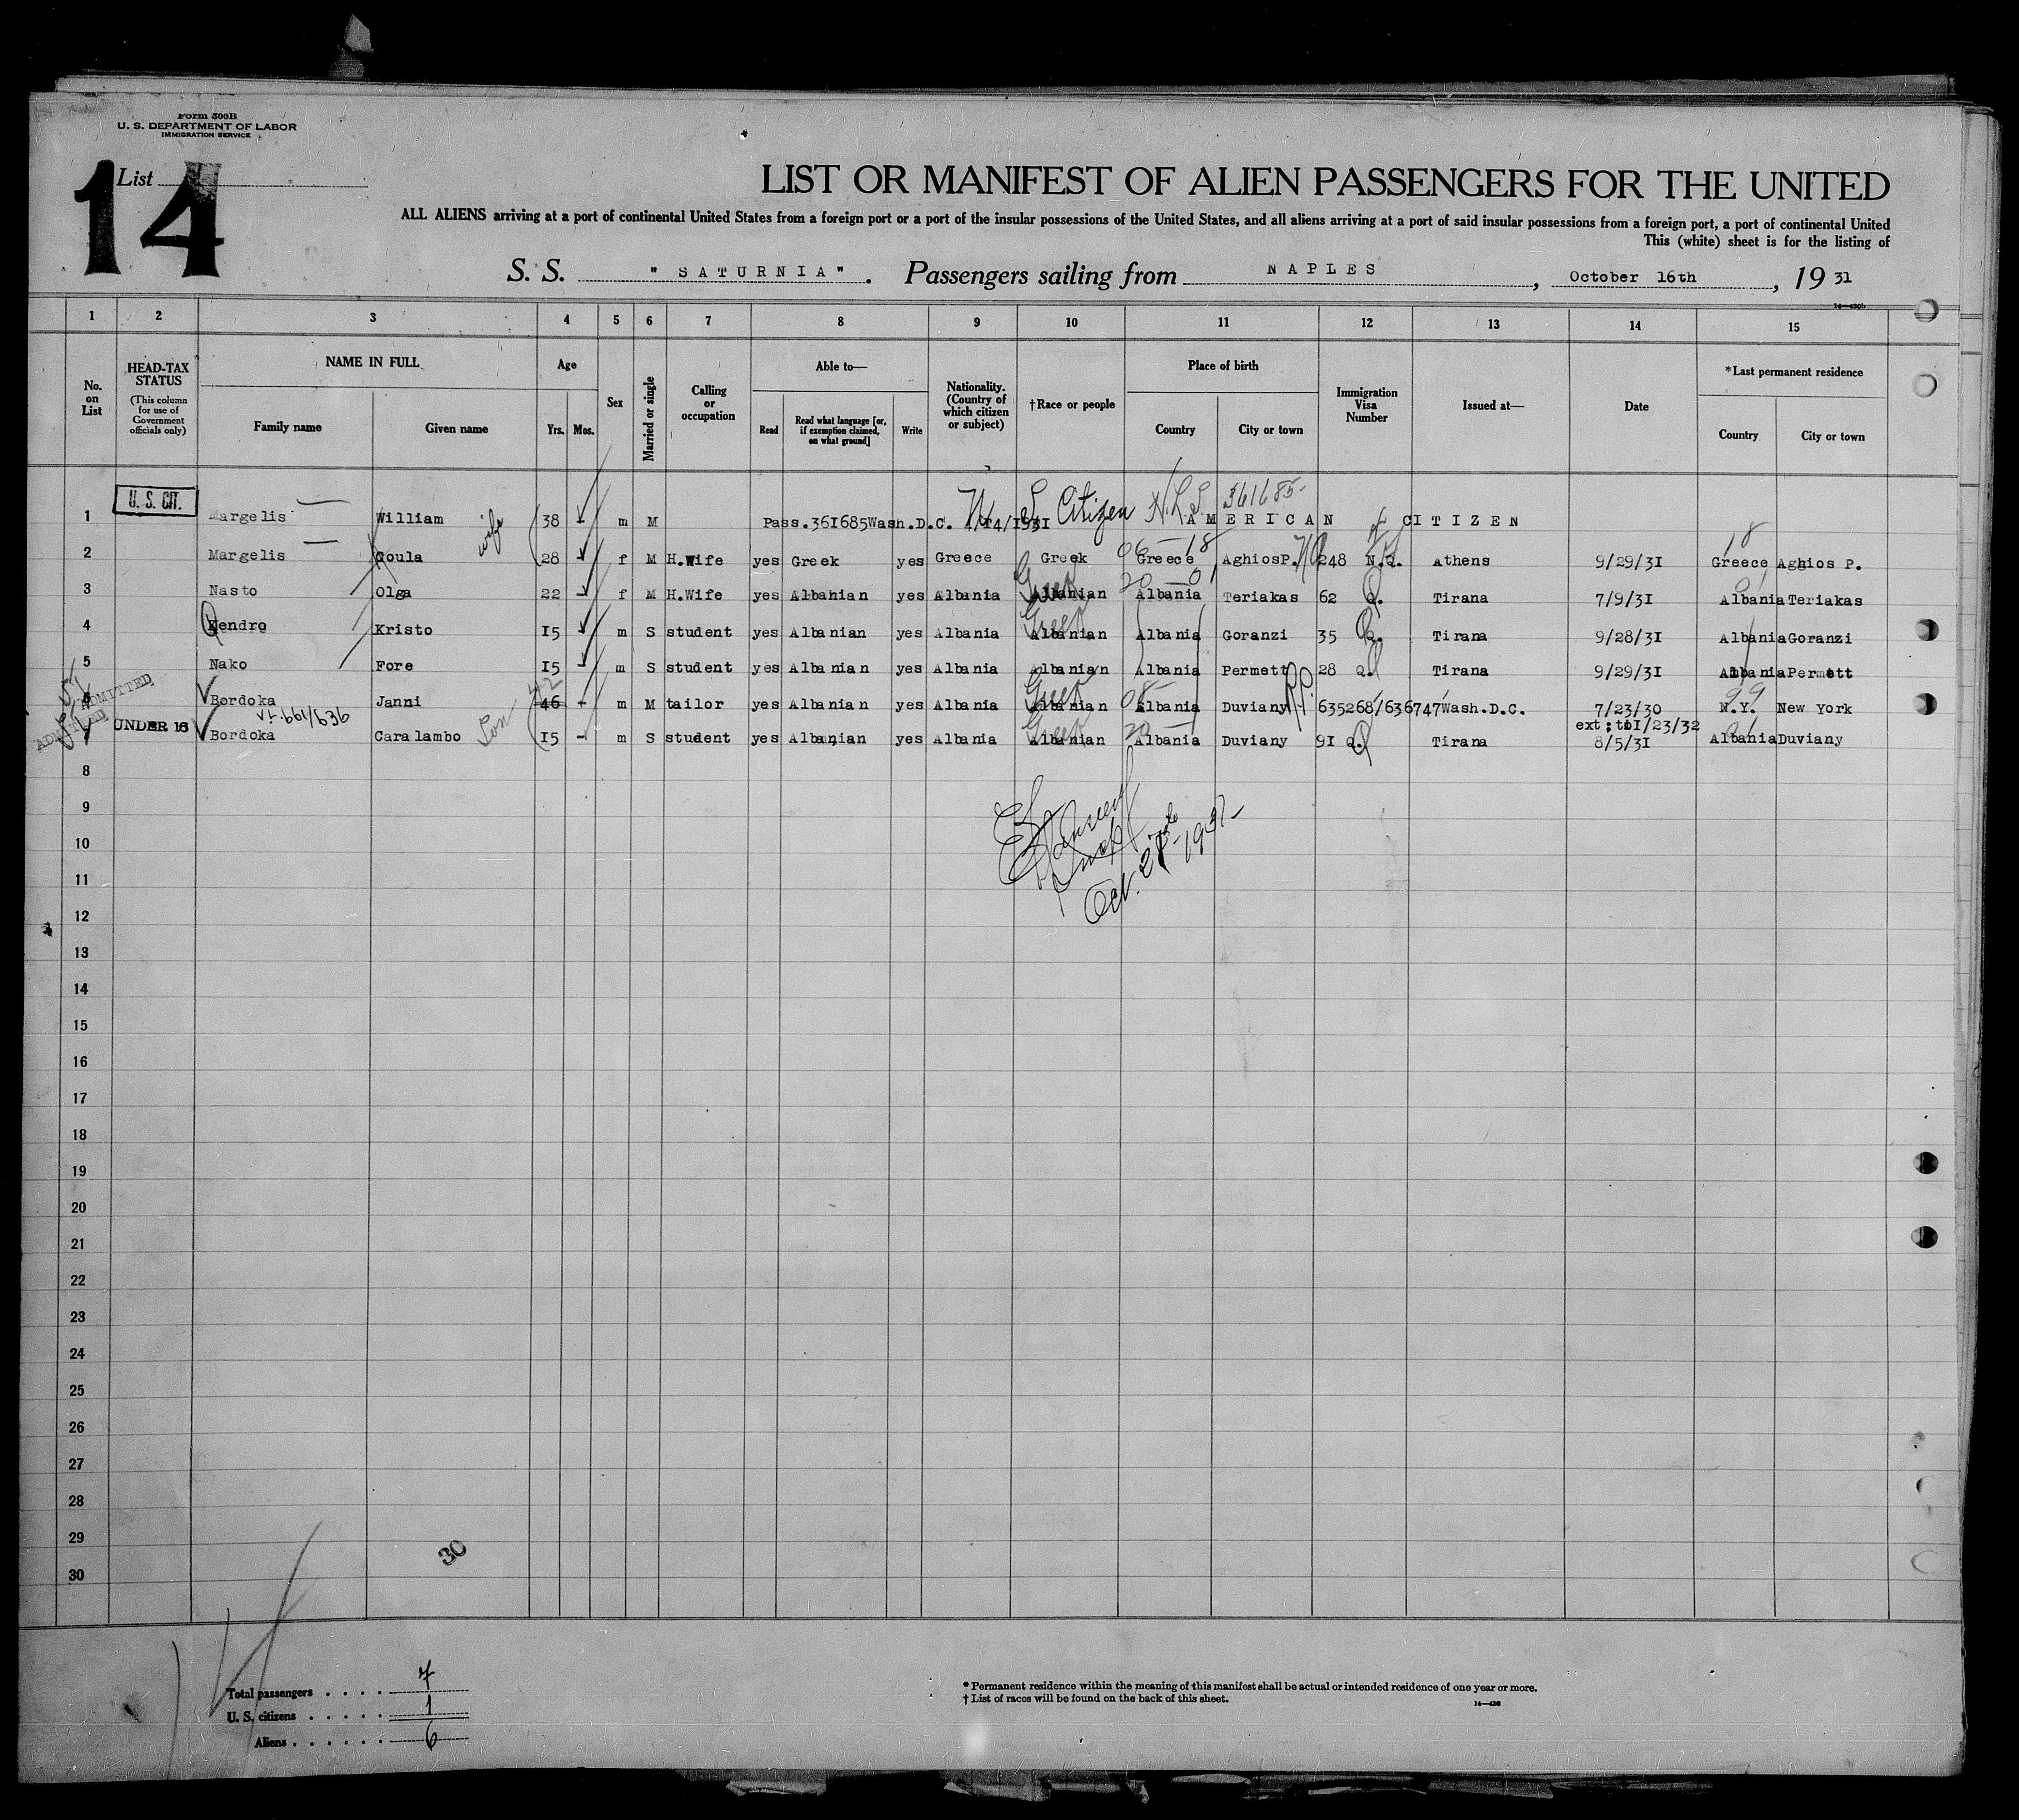 Form 500B
U. S. DEPARTMENT OF LABOR
IMMIGRATION SERVICE
List 14
LIST OR MANIFEST OF ALIEN PASSENGERS FOR THE UNITED
ALL ALIENS arriving at a port of continental United States from a foreign port or a port of the insular possessions of the United States, and all aliens arriving at a port of said insular possessions from a foreign port, a port of continental United
This (white) sheet is for the listing of
S. S. "SATURNIA". Passengers sailing from NAPLES, October 16th, 1931
14—430b
1 2 3 4 5 6 7 8 9 10 11 12 13 14 15
No. on List
HEAD-TAX STATUS (This column for use of Government officials only)
NAME IN FULL
Family name Given name
Age
Yrs. Mos.
Sex
Married or single
Calling or occupation
Able to—
Read Read what language [or, if exemption claimed, on what ground] Write
Nationality. (Country of which citizen or subject)
†Race or people
Place of birth
Country City or town
Immigration Visa Number
Issued at—
Date
*Last permanent residence
Country City or town
U. S. Citizen 361685-
1 U. S. CIT. Margelis William 38 - m M Pass.361685Wash.D.C. /14/1931 AMERICAN CITIZEN
wife
06-18 18
2 Margelis Goula 28 f M H.Wife yes Greek yes Greece Greek Greece AghiosP. 248 N.Q. Athens 9/29/31 Greece Aghios P.
Greek 20-01 01
3 Nasto Olga 22 - f M H.Wife yes Albanian yes Albania Albanian Albania Teriakas 62 Q. Tirana 7/9/31 Albania Teriakas
Greek
4 Kendro Kristo 15 m S student yes Albanian yes Albania Albanian Albania Goranzi 35 Q. Tirana 9/28/31 Albania Goranzi
5 Nako Fore 15 - m S student yes Albanian yes Albania Albanian Albania Permett 28 Q. Tirana 9/29/31 Albania Permett
ADMITTED 42 Greek 08 99
6 Bordoka Janni 46 - m M tailor yes Albanian yes Albania Albanian Albania Duviany 635268/636747 Wash.D.C. 7/23/30 N.Y. New York
ext:to11/23/32
ADMITTED UNDER 16 661/636 Son Greek 20 01
7 Bordoka Caralambo 15 - m S student yes Albanian yes Albania Albanian Albania Duviany 91 Q. Tirana 8/5/31 Albania Duviany
8
9
10
Oct. 28-1931-
11
12
13
14
15
16
17
18
19
20
21
22
23
24
25
26
27
28
29
30
30
Total passengers . . . . 7
U. S. citizens . . . . . 1
Aliens . . . . . . 6
* Permanent residence within the meaning of this manifest shall be actual or intended residence of one year or more.
† List of races will be found on the back of this sheet.
14—430